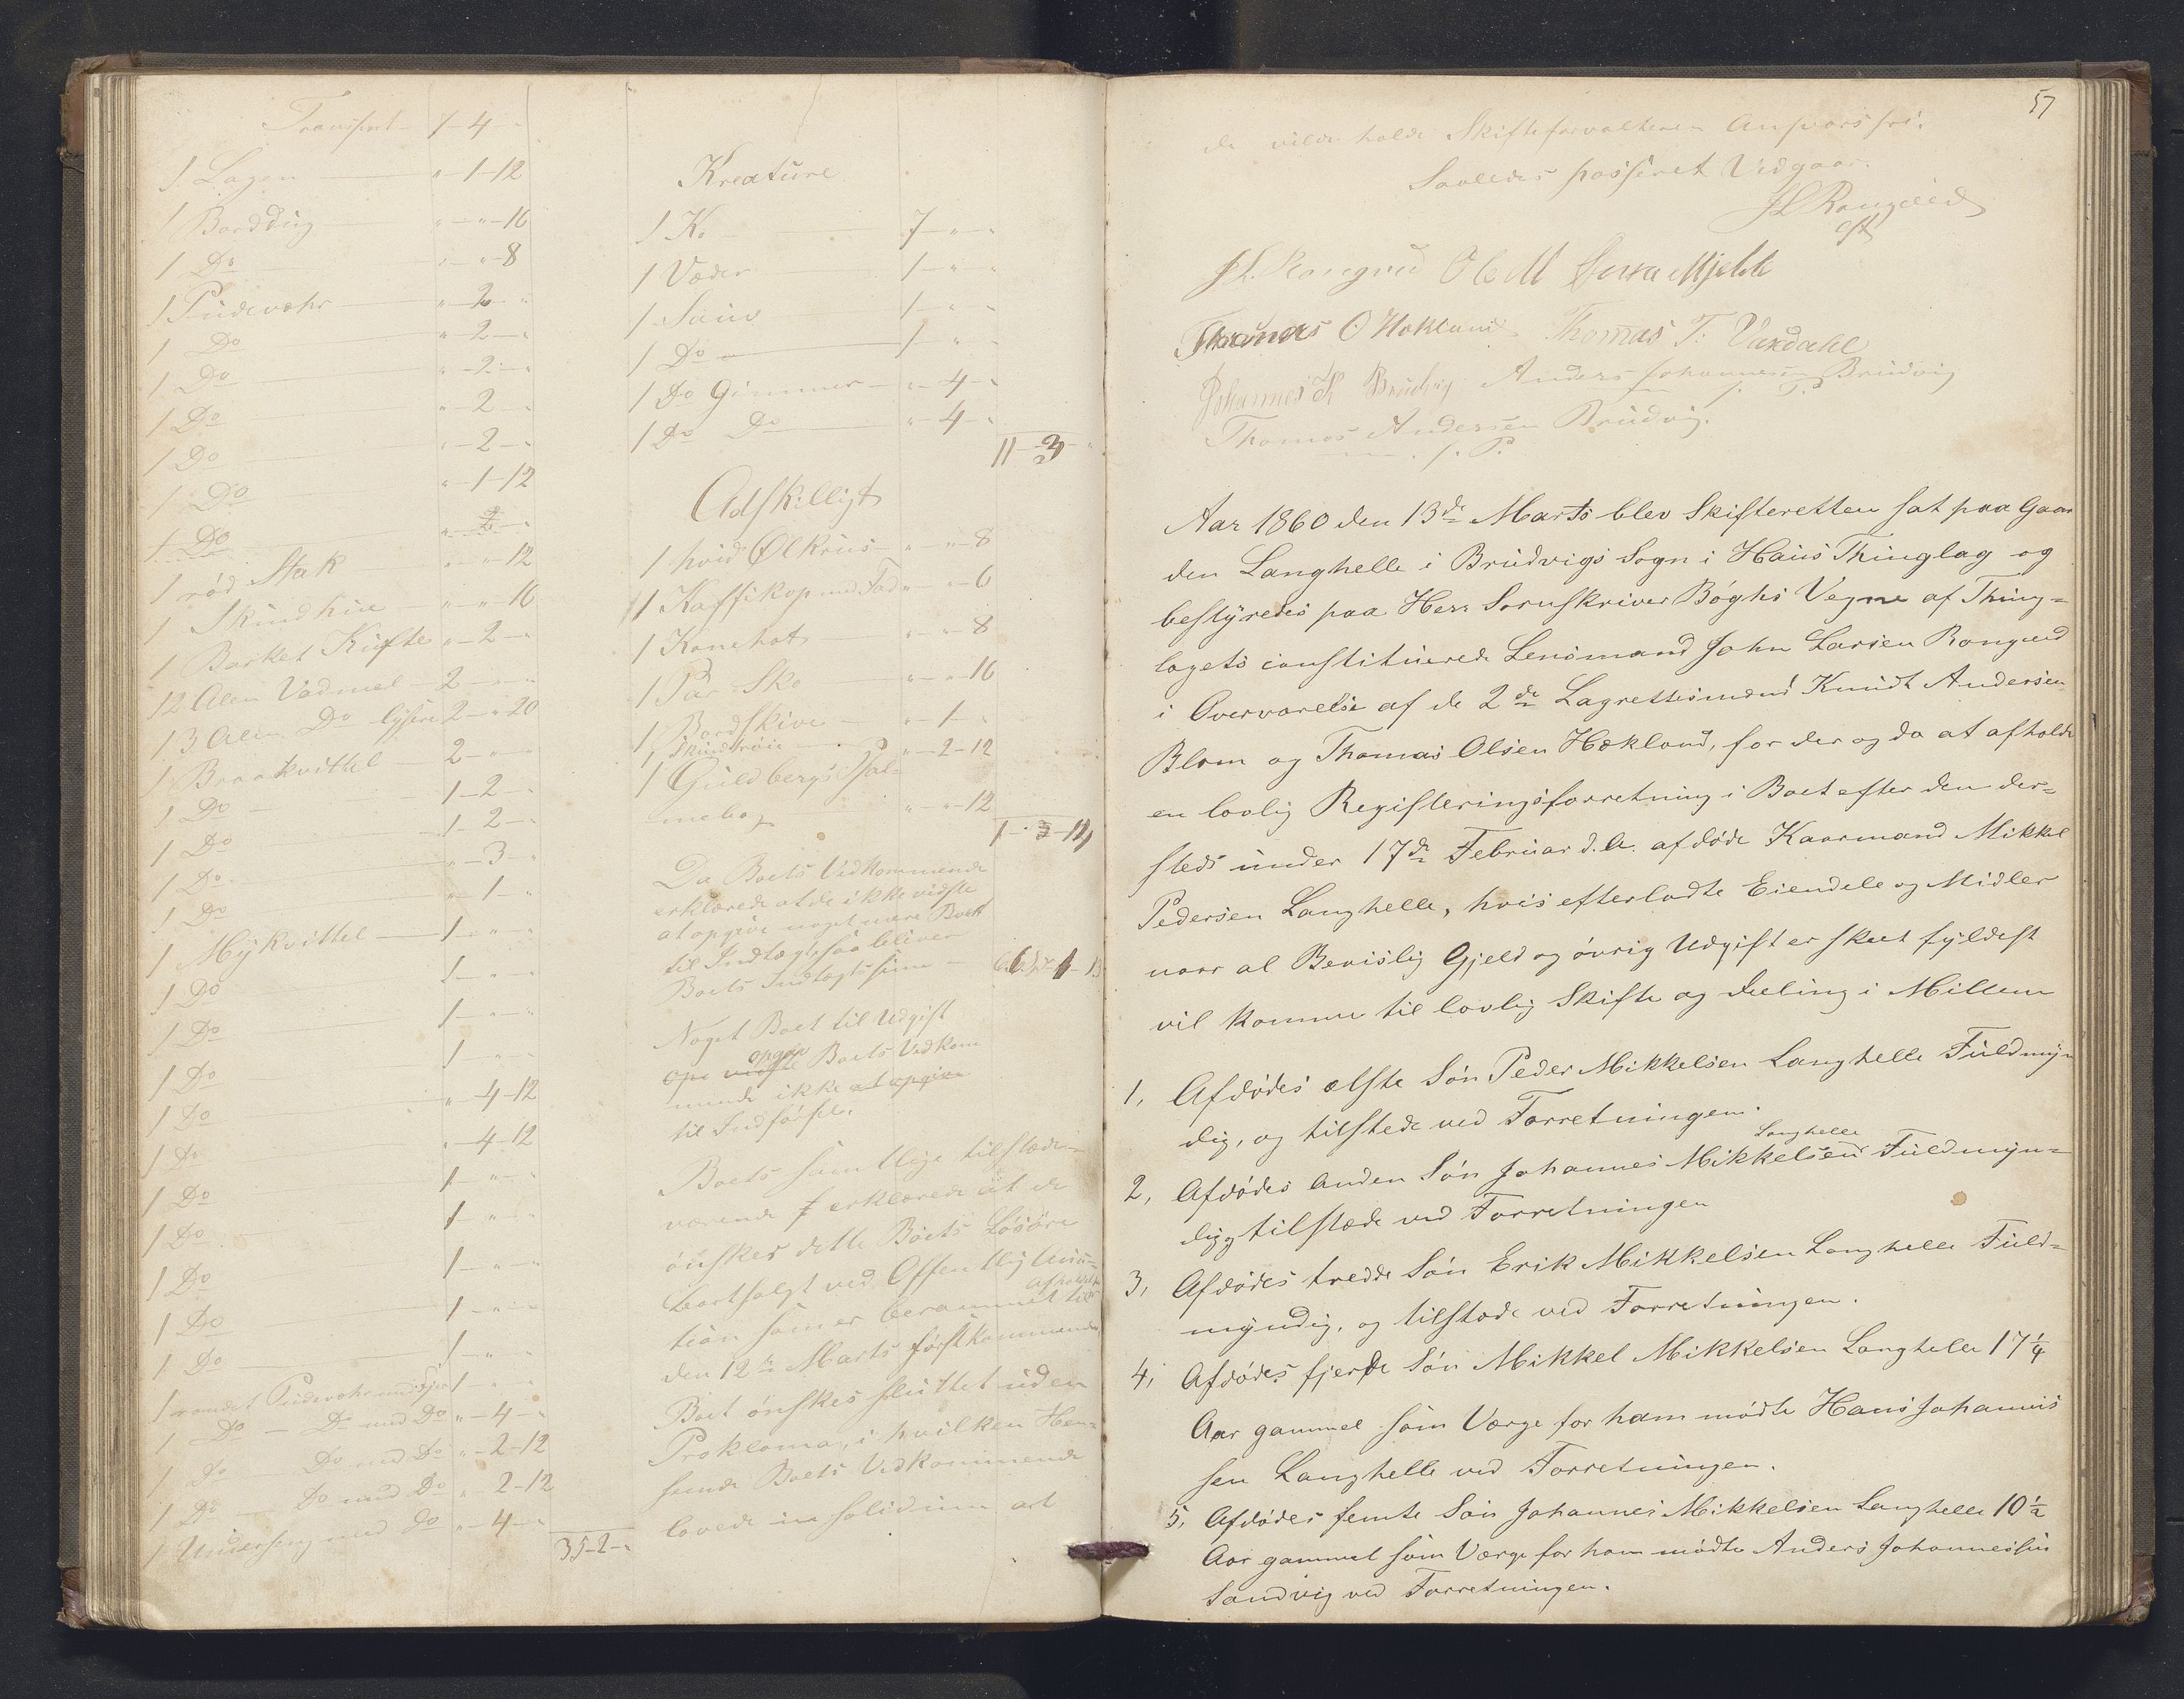 Transport 1-4-"
1 Lagen "-1-12
1 Borddug "-"-16
1 Do "-"-8
1 Pudevahr "-2-"
1 Do "-2-"
1 Do "-2-"
1 Do "-2-"
1 Do "-2-"
1 Do "-1-12
1 Do
1 rød Stak "-"-12
1 Skind hue "-"-16
1 Barket Kufte "-2-"
12 Alen Vadmel 2-"-"
13 Alen Do lysere 2-"-20
1 Braakvittel 2-"-"
1 Do 1-2-"
1 Do 1-2-"
1 Do "-3-"
1 Do "-1-"
1 Mykvittel 1-"-"
1 Do 1-"-"
1 Do 1-"-"
1 Do 1-"-"
1 Do "-4-12
1 Do "-4-12
1 Do 1-"-"
1 Do 1-"-"
1 Do 1-"-"
1 Do 1-"-"
1 Do 1-"-"
1 Pudevahr med Fjær 1-"-"
1 Do - Do med Do "-4-"
1 Do Do med Do "-2-12
1 Do Do med Do "-2-12
1 Underseng med Do "-4-"
35-2-"
Kreature
1 Ko 7-"-"
1 Væder 1-"-"
1 Sauv 1-"-"
1 Do 1-"-"
1 Do Gimmer "-4-"
1 Do Do "-4-"
11-3-"
Adskilligt
1 hvid Ølkrus "-"-8
1 Kaffikop med Fad "-"-6
1 Konehat "-"-8
1 Par Sko "-"-16
1 Bordskive "-1-"
1 Skindtrøie "-2-12
1 Guldbergs Psal-
mebog "-"-12
Da Boets Vedkommende
erklærede at de ikke vidste
at opgive noget mere Boet
til Indtægt saa bliver
Boets Indtægtssum
Noget Boet til Udgift
opgav Boets Vedkom
mende ikke at opgive
til Indførsel.
Boets samtlige tilstæde-
værende erklærede at de
ønsker dette Boets Løsøre
bortsolgt ved Offentlig Auk-
afholdt
tion som er berammet til
den 12te Marts førstkommende
Boet ønskes sluttet uden
Proklama, i hvilken Hen-
seende Boets Vedkommende
lovede in solidum at
57
de vilde holde Skifteforvalteren Ansvarsfri.
Saaledes passeret Vedgaar.
JLRongved
cst
JL Rongved Ole M Mjelde
Thomas O Hokland Thomas T. Vaxdahl
Johannes K Brudvig Anders Johannessen Brudvig
m. f. P.
Thomas Andersen Brudvig.
m. f. P.
Aar 1860 den 13de Marts blev Skifteretten sat paa Gaar
den Langhelle i Brudvigs Sogn i Haus Thinglag og
bestyredes paa Herr Sornskriver Bøghs Vegne af Thing-
lagets constituerede Lensmand John Larsen Rongved
i Overværelse af de 2de Lagrettesmænd Knudt Andersen
Blom og Thomas Olsen Hækland, for der og da at afholde
en lovlig Registeringsforretning i Boet efter den der-
steds under 17de Februar d.A. afdøde Kaarmand Mikkel
Pedersen Langhelle, hvis efterladte Eiendele og Midler
naar al Bevislig Gjeld og øvrig Udgift er skeet fyldest
vil komme til lovlig Skifte og Deeling i Millem
1, Afdødes ælste Søn Peder Mikkelsen Langhelle Fuldmyn
dig, og tilstede ved Forretningen.
Langhelle
2, Afdødes anden Søn Johannes Mikkelsen Fuldmyn-
dig, tilstæde ved Forretningen
3, Afdødes tredde Søn Erik Mikkelsen Langhelle Fuld-
myndig, og tilstæde ved Forretningen.
4, Afdødes fjerde Søn Mikkel Mikkelsen Langhelle 17 1/4
Aar gammel som Værge for ham mødte Hans Johannis
sen Langhelle ved Forretningen.
5, Afdødes femte Søn Johannes Mikkelsen Langhelle 10 1/2
Aar gammel som Værge for ham mødte Anders Johannessen
Sandvig ved Forretningen.